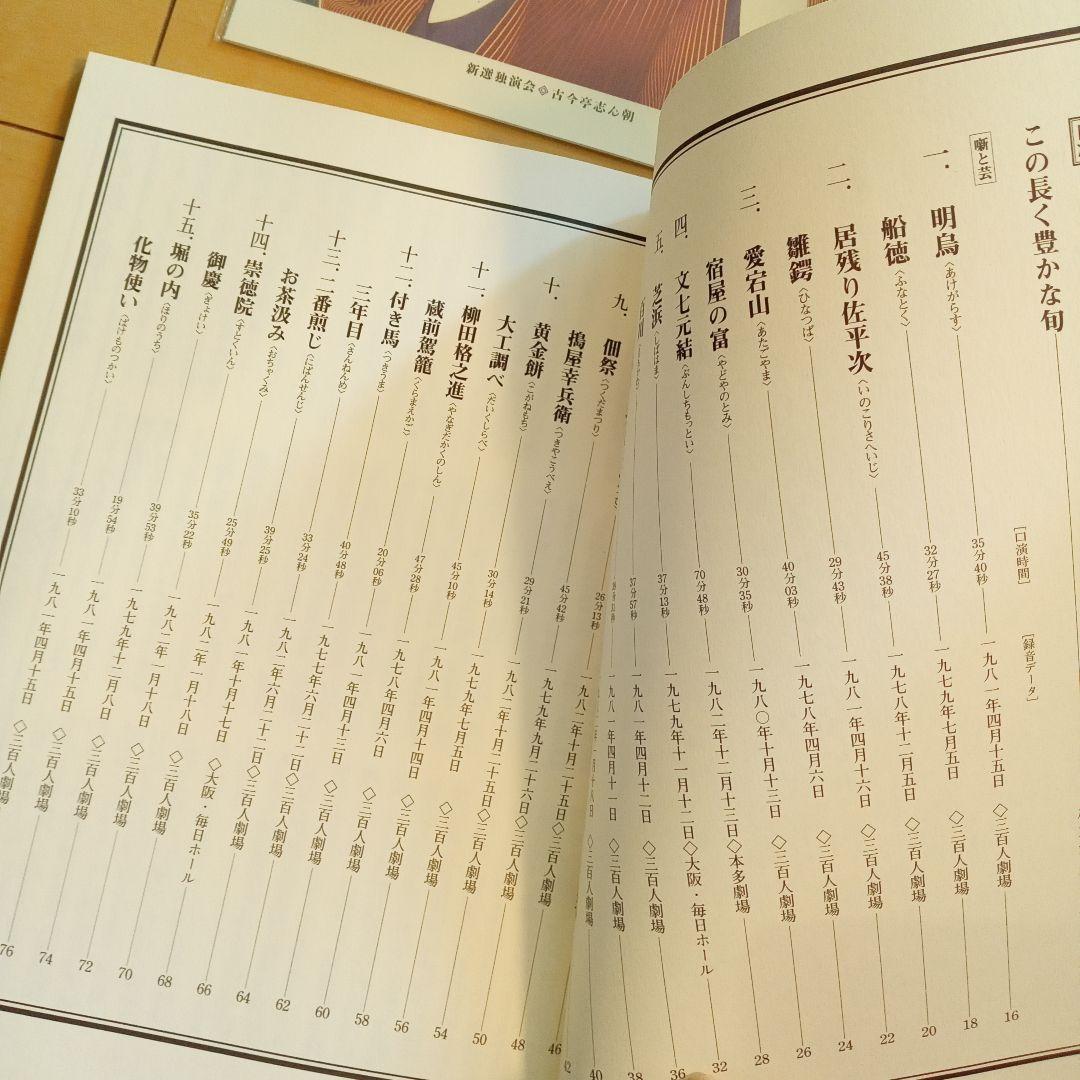 新選独演会◇古今亭志ん朝
この長く豊かな旬
噺と芸
[口演時間]
[録音データ]
一. 明烏〈あけがらす〉 35分40秒 一九八一年四月十五日 ◇三百人劇場 16
船徳〈ふなとく〉 32分27秒 一九七九年七月五日 ◇三百人劇場 18
二. 居残り佐平次〈いのこりさへいじ〉 45分38秒 一九七八年十二月五日 ◇三百人劇場 20
雛鍔〈ひなつば〉 29分43秒 一九八一年四月十四日 ◇三百人劇場 22
三. 愛宕山〈あたごやま〉 40分03秒 一九七八年四月六日 ◇三百人劇場 24
宿屋の富〈やどやのとみ〉 30分35秒 一九八〇年十月十三日 ◇三百人劇場 26
四. 文七元結〈ぶんしちもっとい〉 70分48秒 一九八二年十二月十三日 ◇本多劇場 28
五. 芝浜〈しばはま〉 37分13秒 一九七九年十一月十二日 ◇大阪・毎日ホール 32
37分57秒 一九八一年四月十二日 ◇三百人劇場 36
一九八一年四月十一日 ◇三百人劇場 38
◇三百人劇場 40
26分13秒 42
九. 佃祭〈つくだまつり〉 45分42秒 一九八二年十月二十五日 ◇三百人劇場 46
搗屋幸兵衛〈つきやこうべえ〉 29分21秒 一九七九年九月二十六日 ◇三百人劇場 48
十. 黄金餅〈こがねもち〉 30分14秒 一九八二年十月二十五日 ◇三百人劇場 50
大工調べ〈だいくしらべ〉 45分10秒 一九七九年七月五日 ◇三百人劇場 54
十一. 柳田格之進〈やなぎだかくのしん〉 47分28秒 一九八一年四月十四日 ◇三百人劇場 56
蔵前駕籠〈くらまえかご〉 20分06秒 一九七八年四月六日 ◇三百人劇場 58
十二. 付き馬〈つきうま〉 40分48秒 一九八一年四月十三日 ◇三百人劇場 60
三年目〈さんねんめ〉 33分24秒 一九七七年六月二十二日 ◇三百人劇場 62
十三. 二番煎じ〈にばんせんじ〉 39分25秒 一九八二年六月二十二日 ◇三百人劇場 64
お茶汲み〈おちゃくみ〉 25分49秒 一九八一年十月十七日 ◇大阪・毎日ホール 66
十四. 崇徳院〈すとくいん〉 35分22秒 一九八二年一月十八日 ◇三百人劇場 68
御慶〈ぎょけい〉 39分53秒 一九七九年十二月八日 ◇三百人劇場 70
十五. 堀の内〈ほりのうち〉 19分54秒 一九八一年四月十五日 ◇三百人劇場 72
化物使い〈ばけものつかい〉 33分10秒 一九八一年四月十五日 ◇三百人劇場 74
◇三百人劇場 76